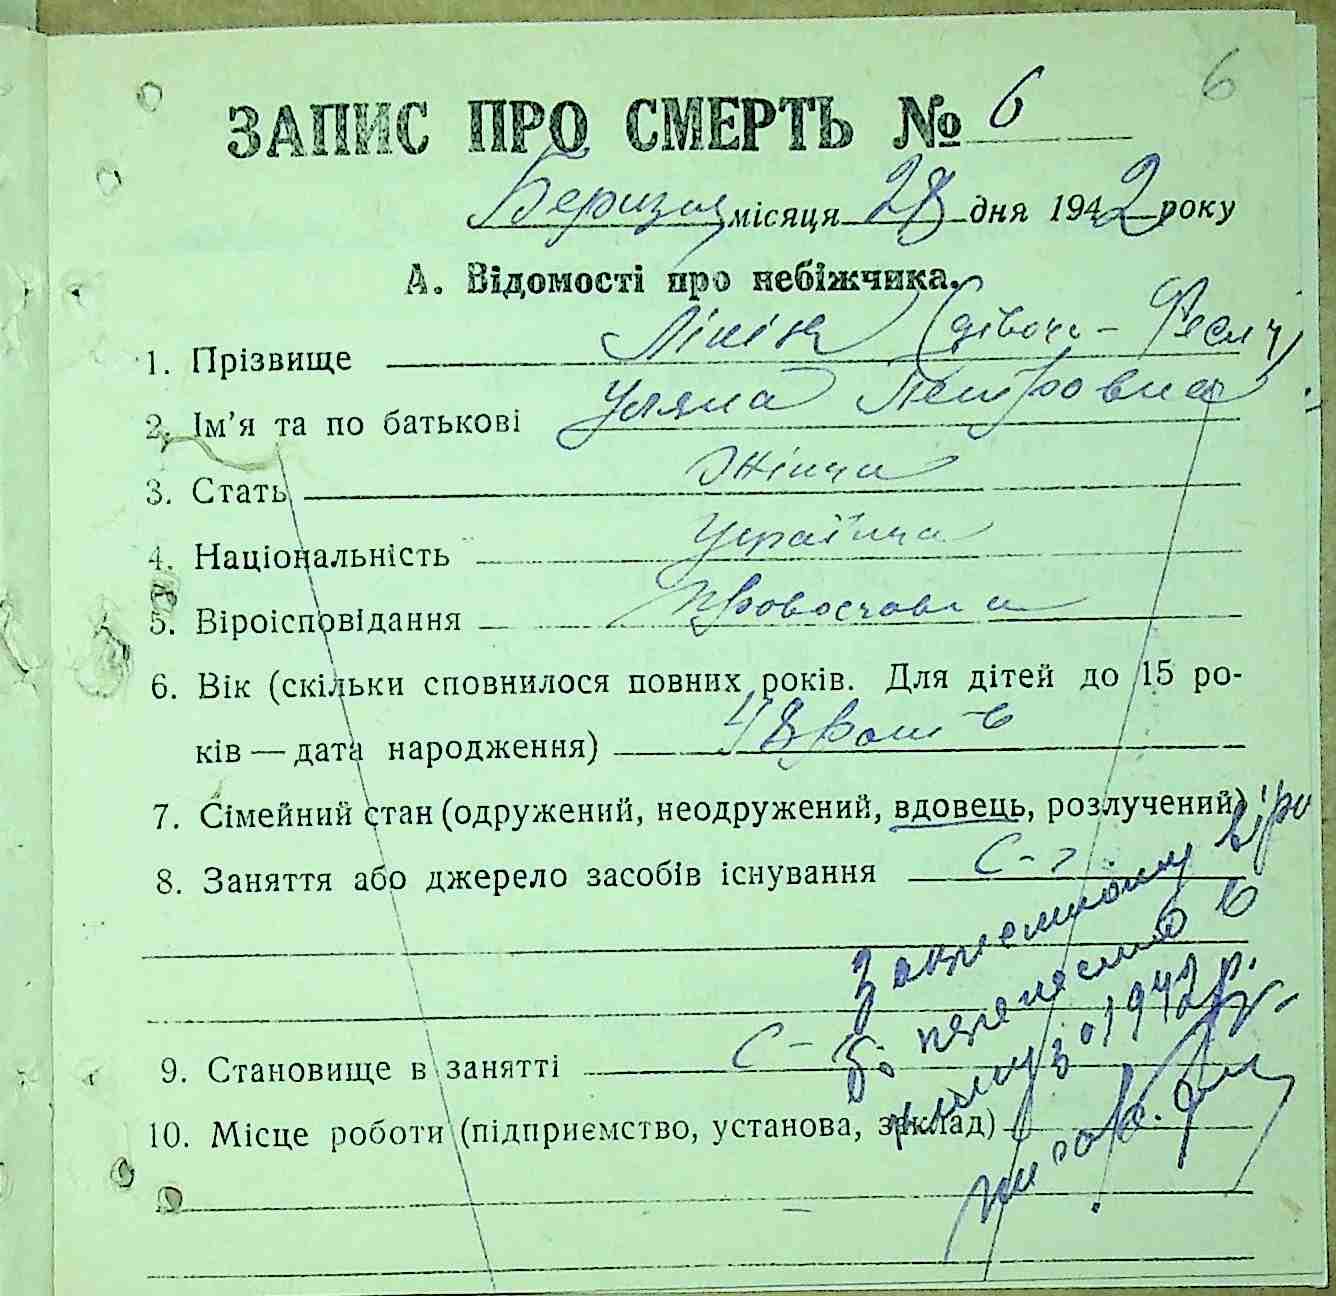 6
ЗАПИС ПРО СМЕРТЬ № 6
Березня місяця 28 дня 1942 року
А. Відомості про небіжчика.
1. Прізвище (дівоче -
2. Ім'я та по батькові Уляна Петровна
3. Стать Жіноча
4. Національність Українка
5. Віроісповідання Православна
6. Вік (скільки сповнилося повних років. Для дітей до 15 ро-
ків — дата народження) 48 років
7. Сімейний стан (одружений, неодружений, вдовець, розлучений)
8. Заняття або джерело засобів існування С-г
9. Становище в занятті С-
10. Місце роботи (підприємство, установа, заклад)
перенесено в
книгу за 1942 р.